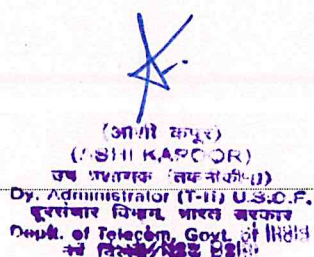 (ASHI KAPOOR)
उप प्रशासक
Dy. Administrator (T-II) U.S.O.F.
दूरसंचार विभाग, भारत सरकार
Deptt. of Telecom, Govt. of India
नई दिल्ली